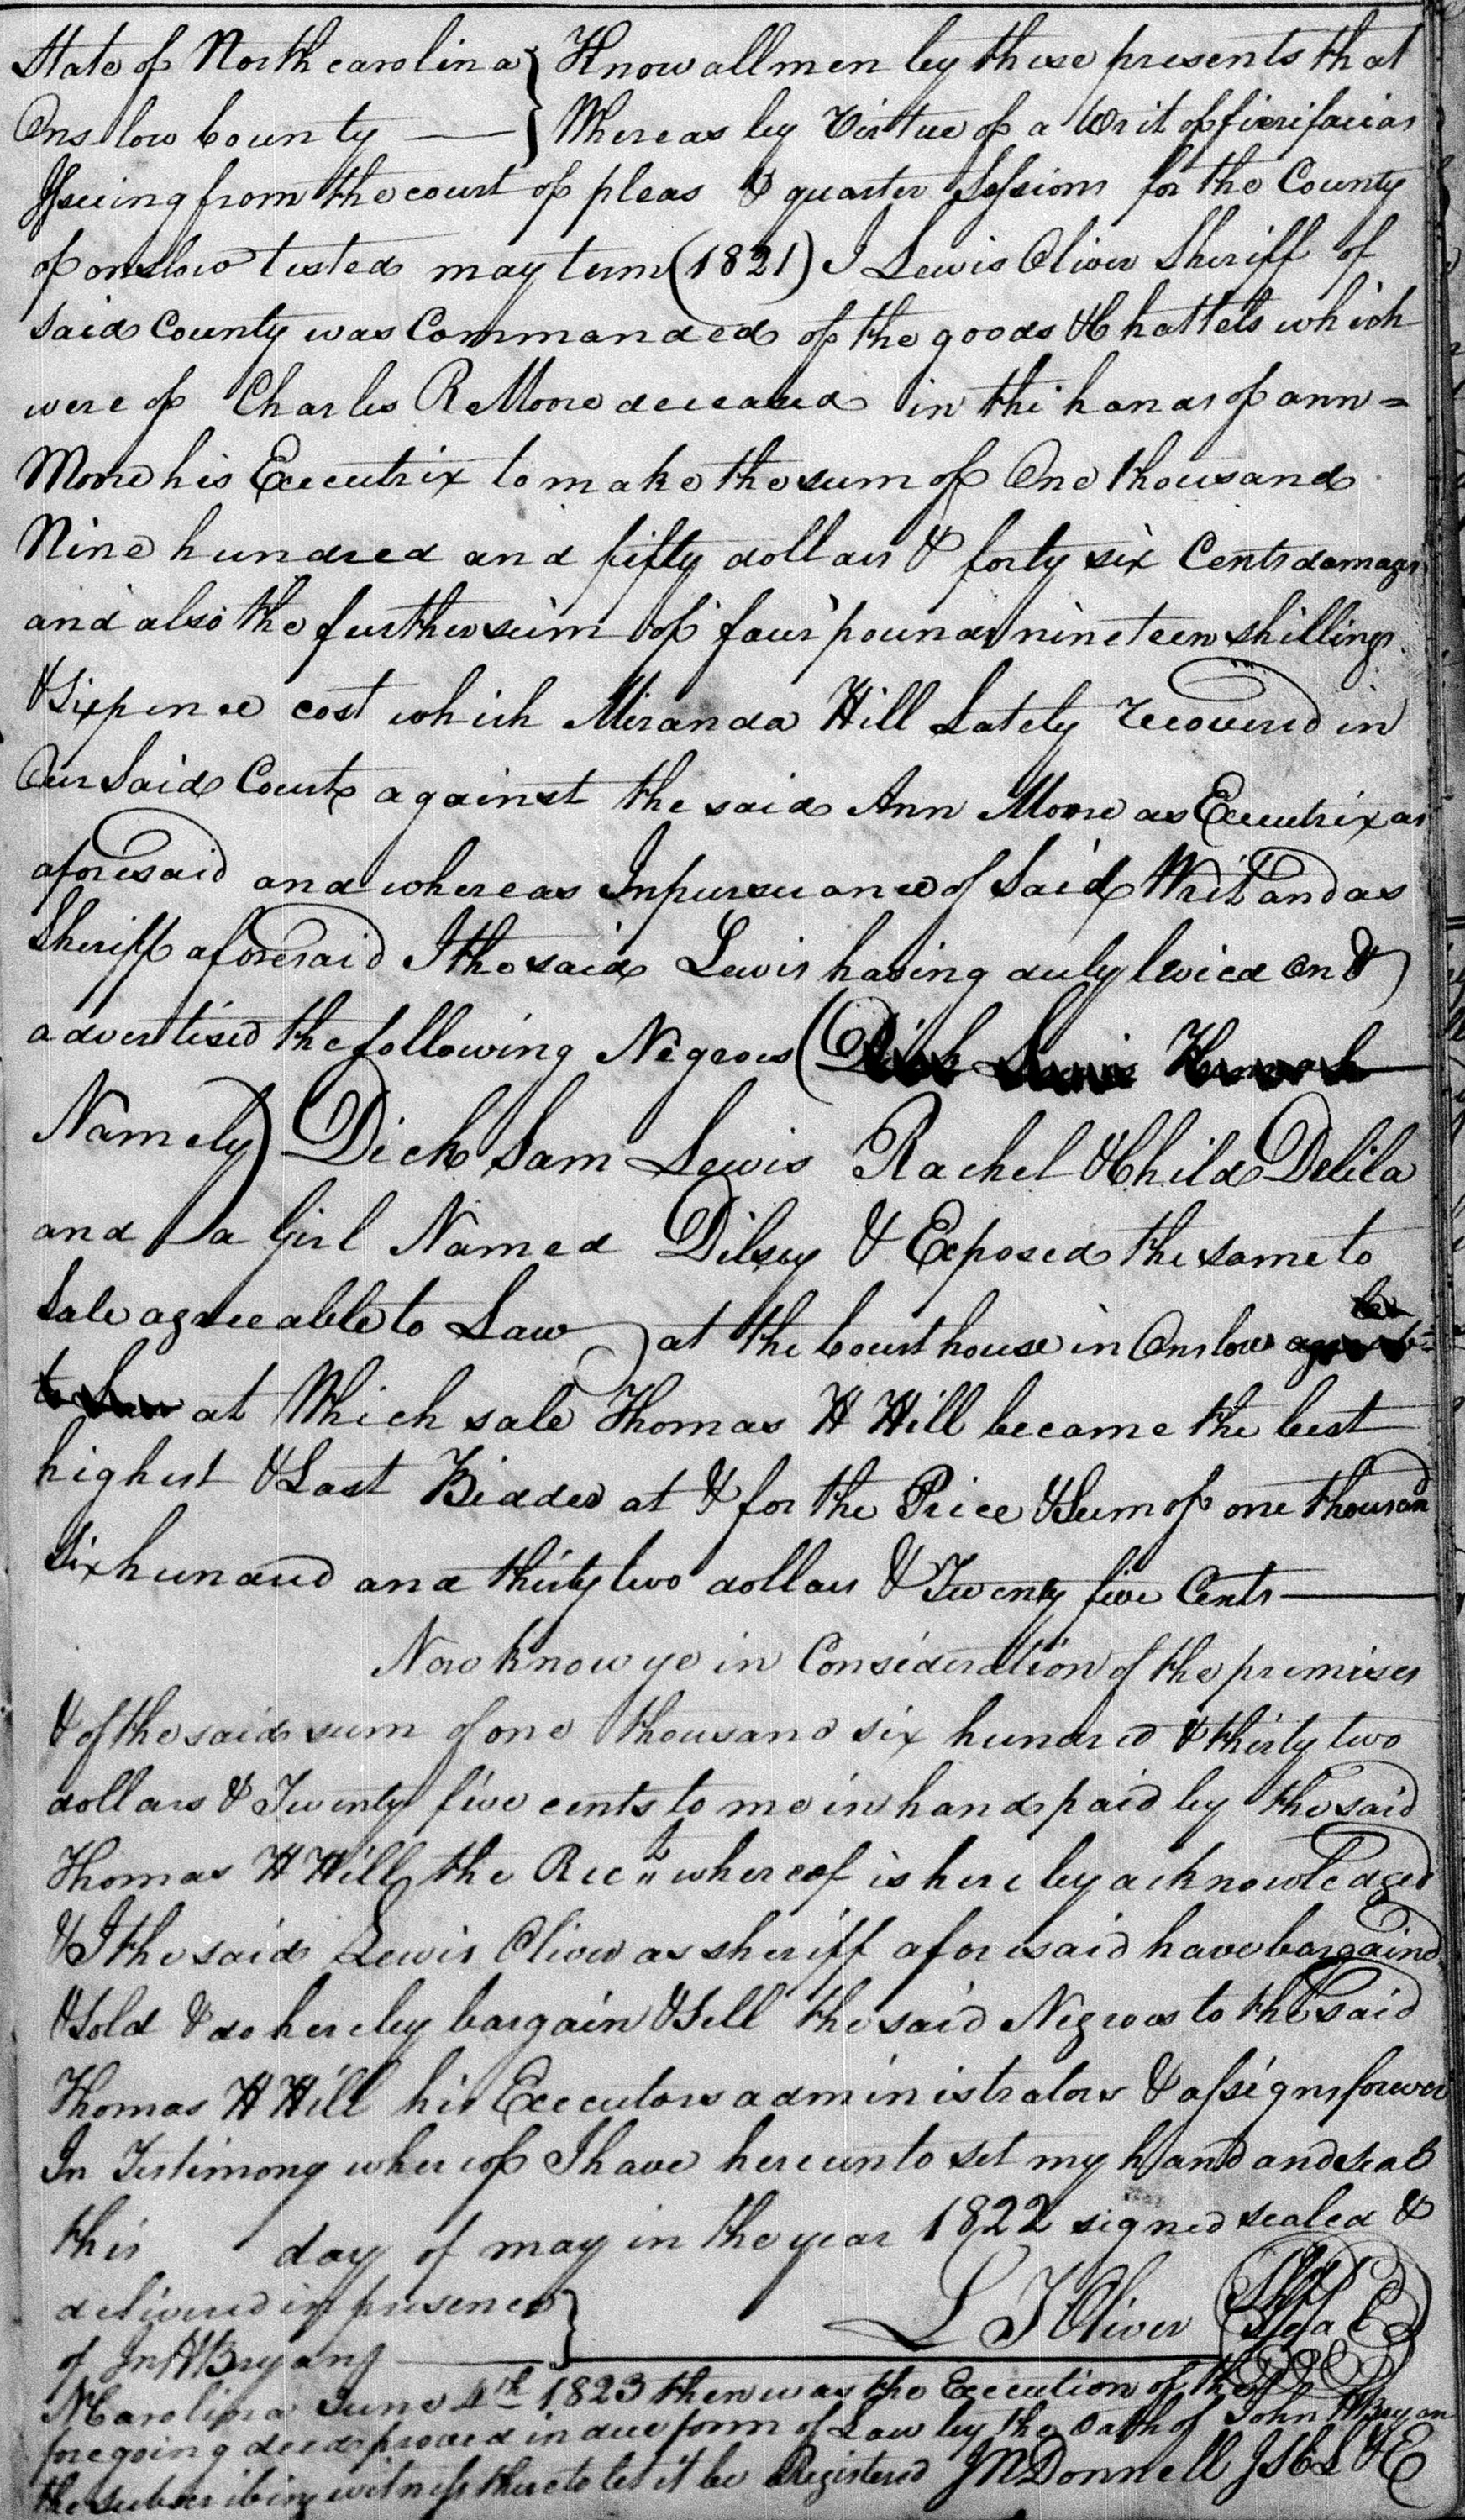 State of North carolina } Know all men by these presents that
Onslow County — } Whereas by Virtue of a Writ of fierifacias
Issuing from the court of pleas & quarter Sessions for the County
of onslow tested may term (1821) I Lewis Oliver Sheriff of
said County was Commanded of the goods & Chattels which
were of Charles R Moore deceased in the hands of ann =
Moore his Executrix to make the sum of One thousand
Nine hundred and fifty dollars & forty six Cents damages
and also the further sum of four pounds nineteen shillings
& Sixpence cost which Miranda Hill Lately recovered in
Our Said Court against the said Ann Moore as Executrix as
aforesaid and whereas In pursuance of Said Writ and as
Sheriff aforesaid I the said Lewis having duly levied on &
advertised the following Negroes (
Namely) Dick Sam Lewis Rachel & Child Delila
and a Girl Named Dilsey & Exposed the same to
Sale agreeable to Law at the Court house in Onslow
at Which sale Thomas H Hill became the best
highest & Last Bidder at & for the Price & Sum of one thousand
Six hundred and thirty two dollars & Twenty five Cents —
Now know ye in Consideration of the premises
& of the said sum of one thousand six hundred & thirty two
dollars & Twenty five cents to me in hand paid by the said
Thomas H Hill the Rect whereof is hereby acknowledged
& I the said Lewis Oliver as sheriff aforesaid have bargaind
& Sold & do hereby bargain & Sell the said Negroes to the said
Thomas H Hill his Executors administrators & assigns forever
In Testimony whereof I have hereunto set my hand and seal
this day of may in the year 1822 signed sealed &
delivered in presence } L T Oliver Shff Seal
of Jn H Bryan }
N Carolina June 4th 1823 then was the Execution of the
foregoing deed proved in due form of Law by the Oath of John H Bryan
the subscribing witness thereto let it be Registered J R Donnell J S C L & E